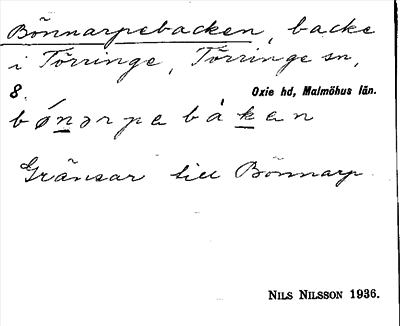 Bönnarpebacken, backe
i Törringe, Törringe sn,
8. Oxie hd, Malmöhus län.
bǿnərpəbåkən
Gränsar till Bönnarp.
NILS NILSSON 1936.